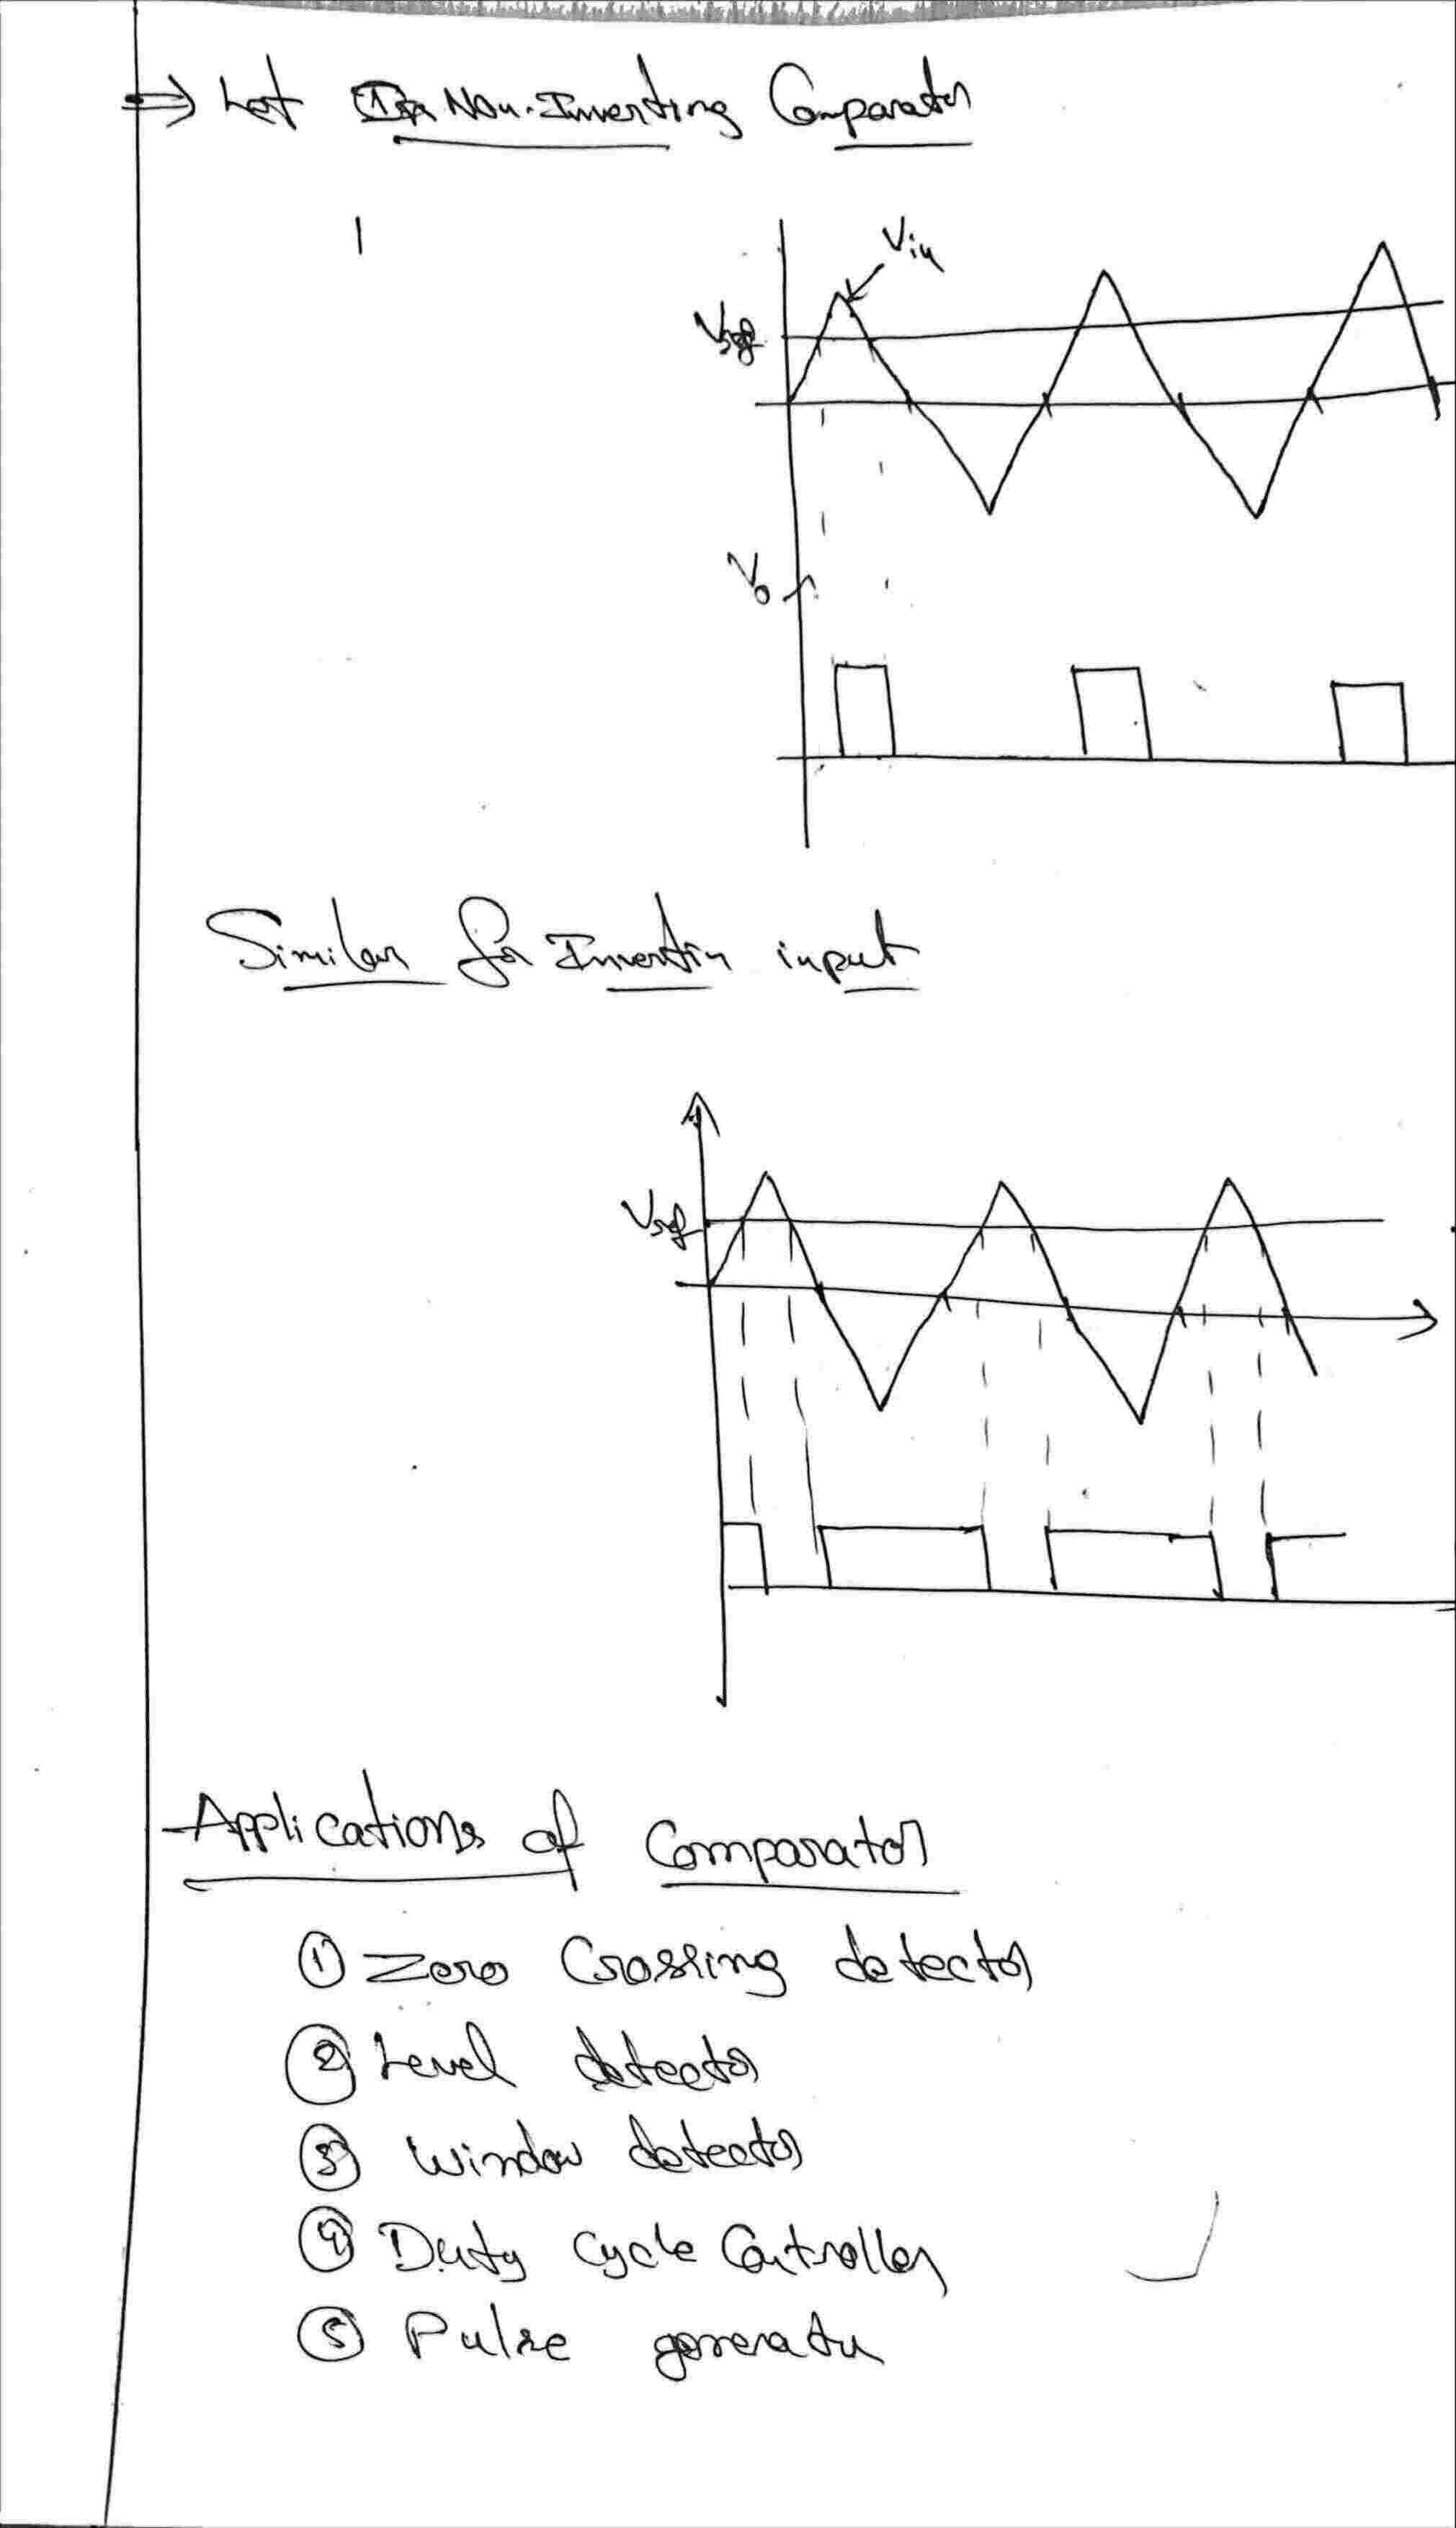 ⇒ Let In Non-Inverting Comparator
Vin
Vref
Vo
Similar for Invertin input
Vref
Applications of Comparator
① Zero Crossing detector
② Level detector
③ Window detector
④ Duty Cycle Controller
⑤ Pulse generator